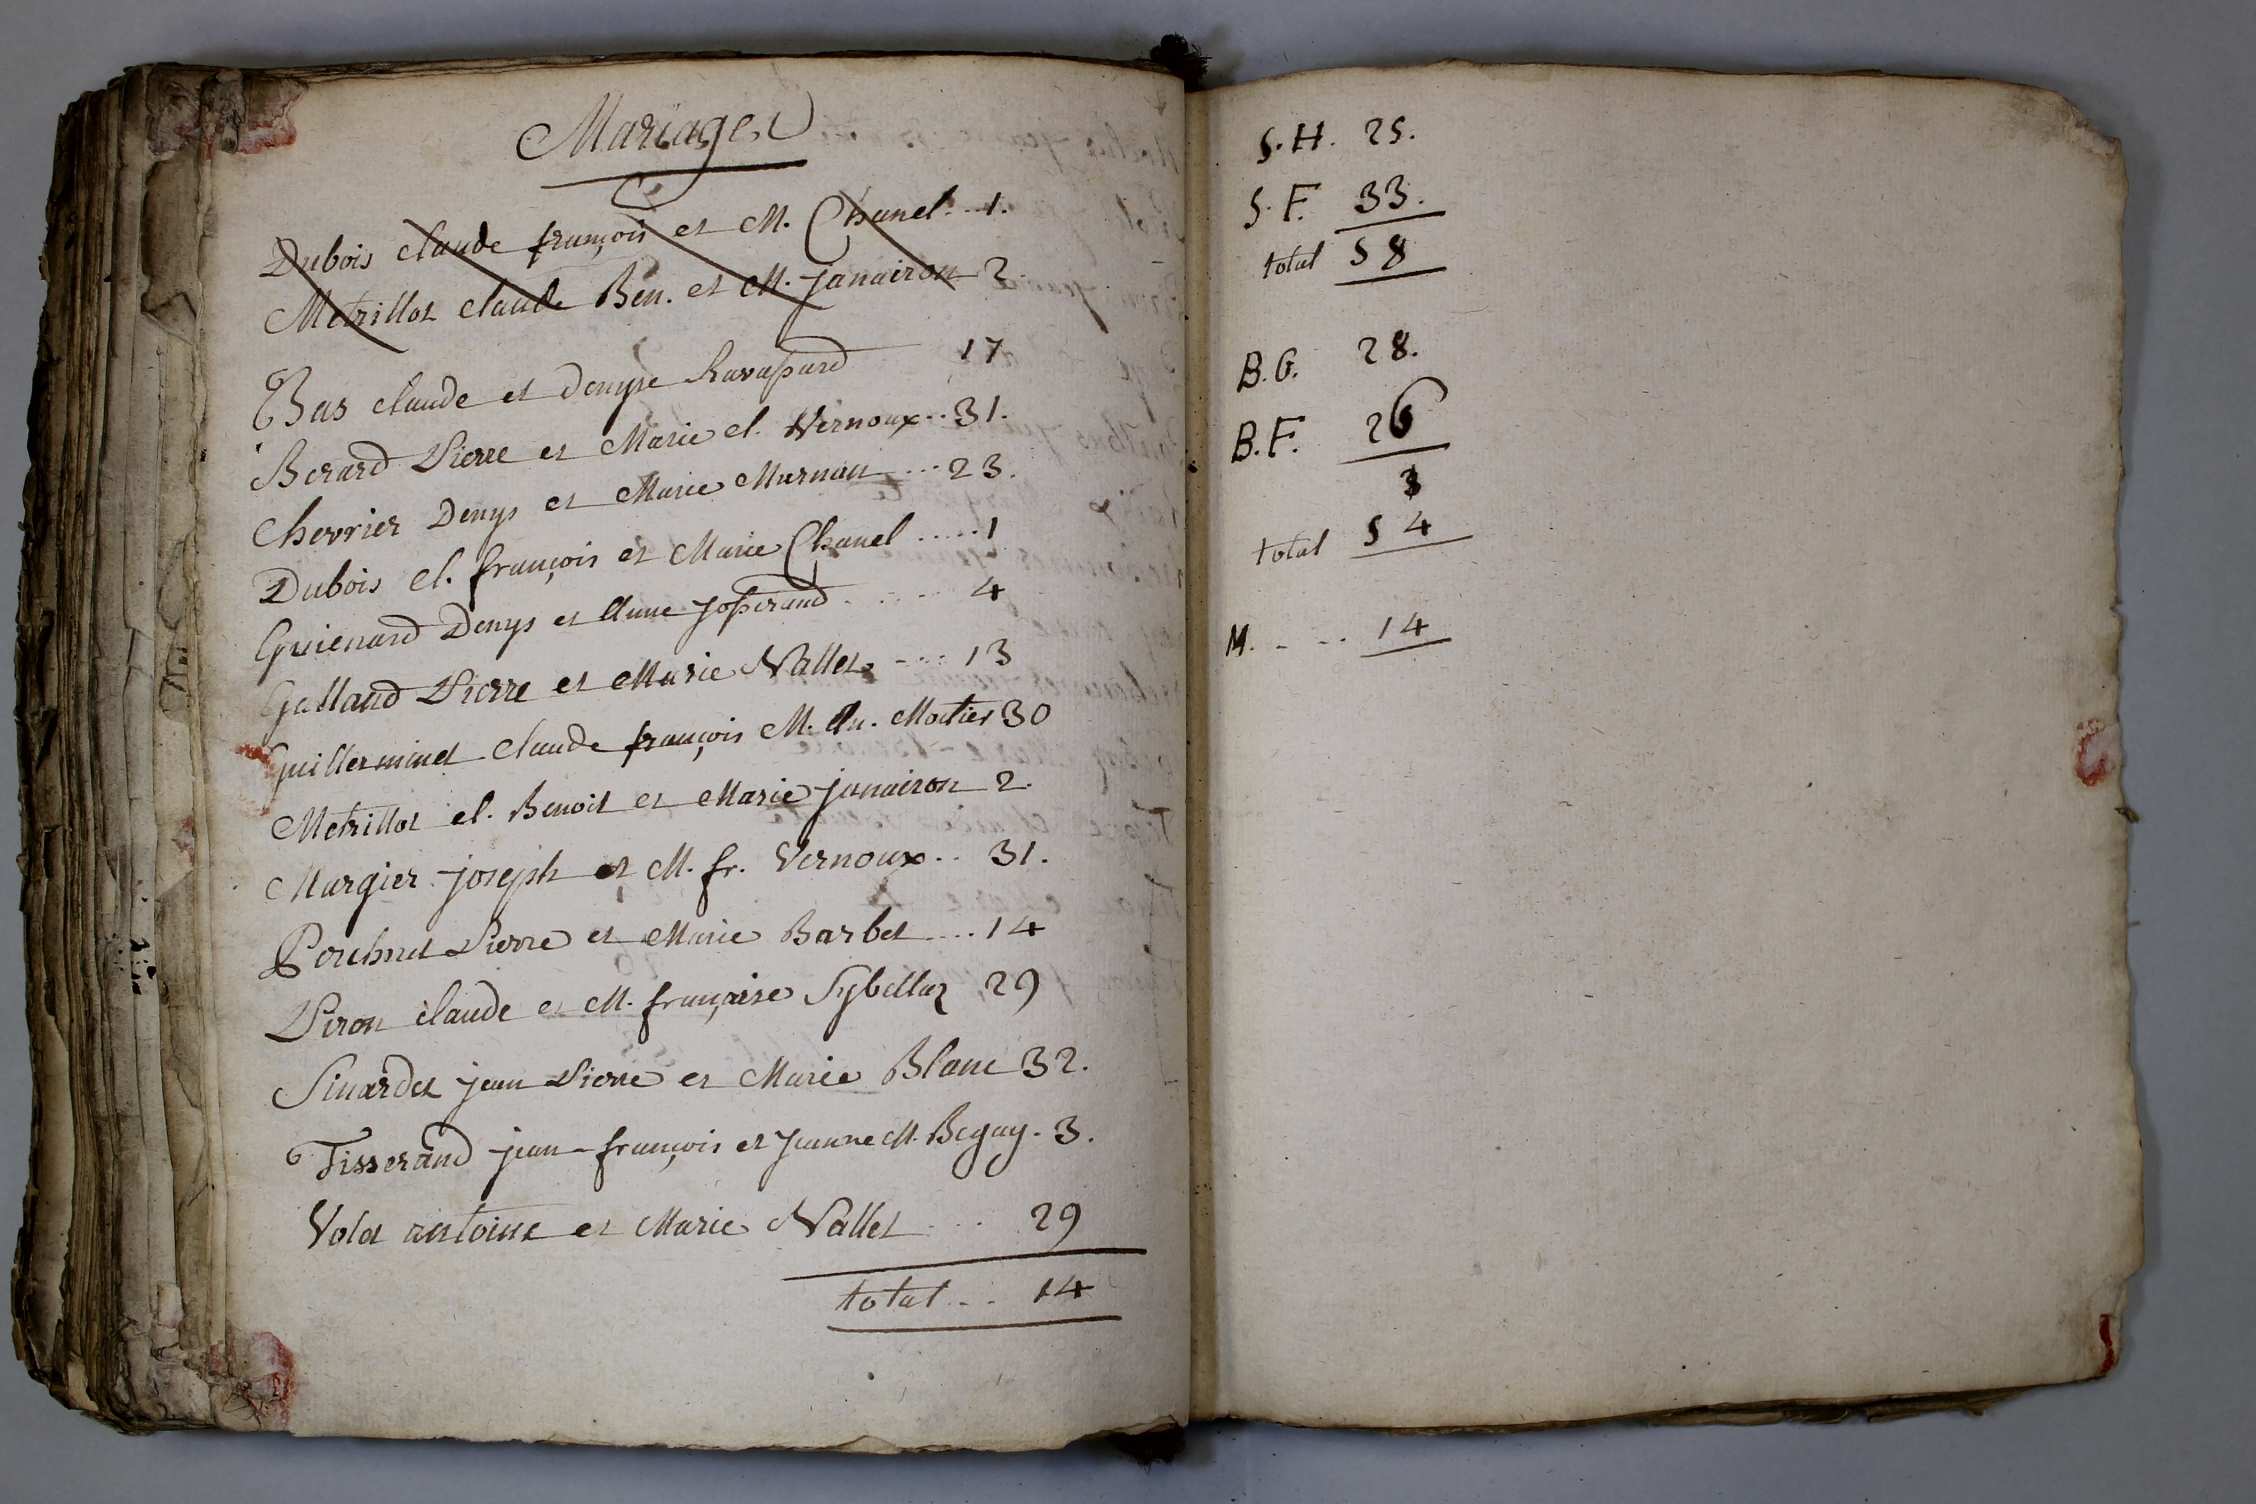 Mariages
Dubois claude françois et M. Chanel...1.
Metrillot claude Ben. et M. janairon 2.
Bas claude et denyse Ravassard 17
Berard Pierre et Marie cl. Vernoux..31.
Chevrier Denys et Marie Murnan...23.
Dubois cl. françois et Marie Chanel.....1
Guienard Denys et Anne josserand.....4
Galland Pierre et Marie Nallet....13
Guillerminet Claude françois M. An. Moctier 30
Metrillot cl. Benoit et Marie janairon 2.
Margier joseph et M. fr. Vernoux..31.
Perchnet Pierre et Marie Barbet...14
Piron claude et M. françoise Sybellaz 29
Sinardet jean Pierre et Marie Blanc 32.
Tisserand jean-françois et Jeanne M. Begay. 3.
Volat antoine et Marie Nallet...29
total...14
S.H. 25.
S.F. 33.
total 58
B.G. 28.
B.F. 26
3
total 54
M....14